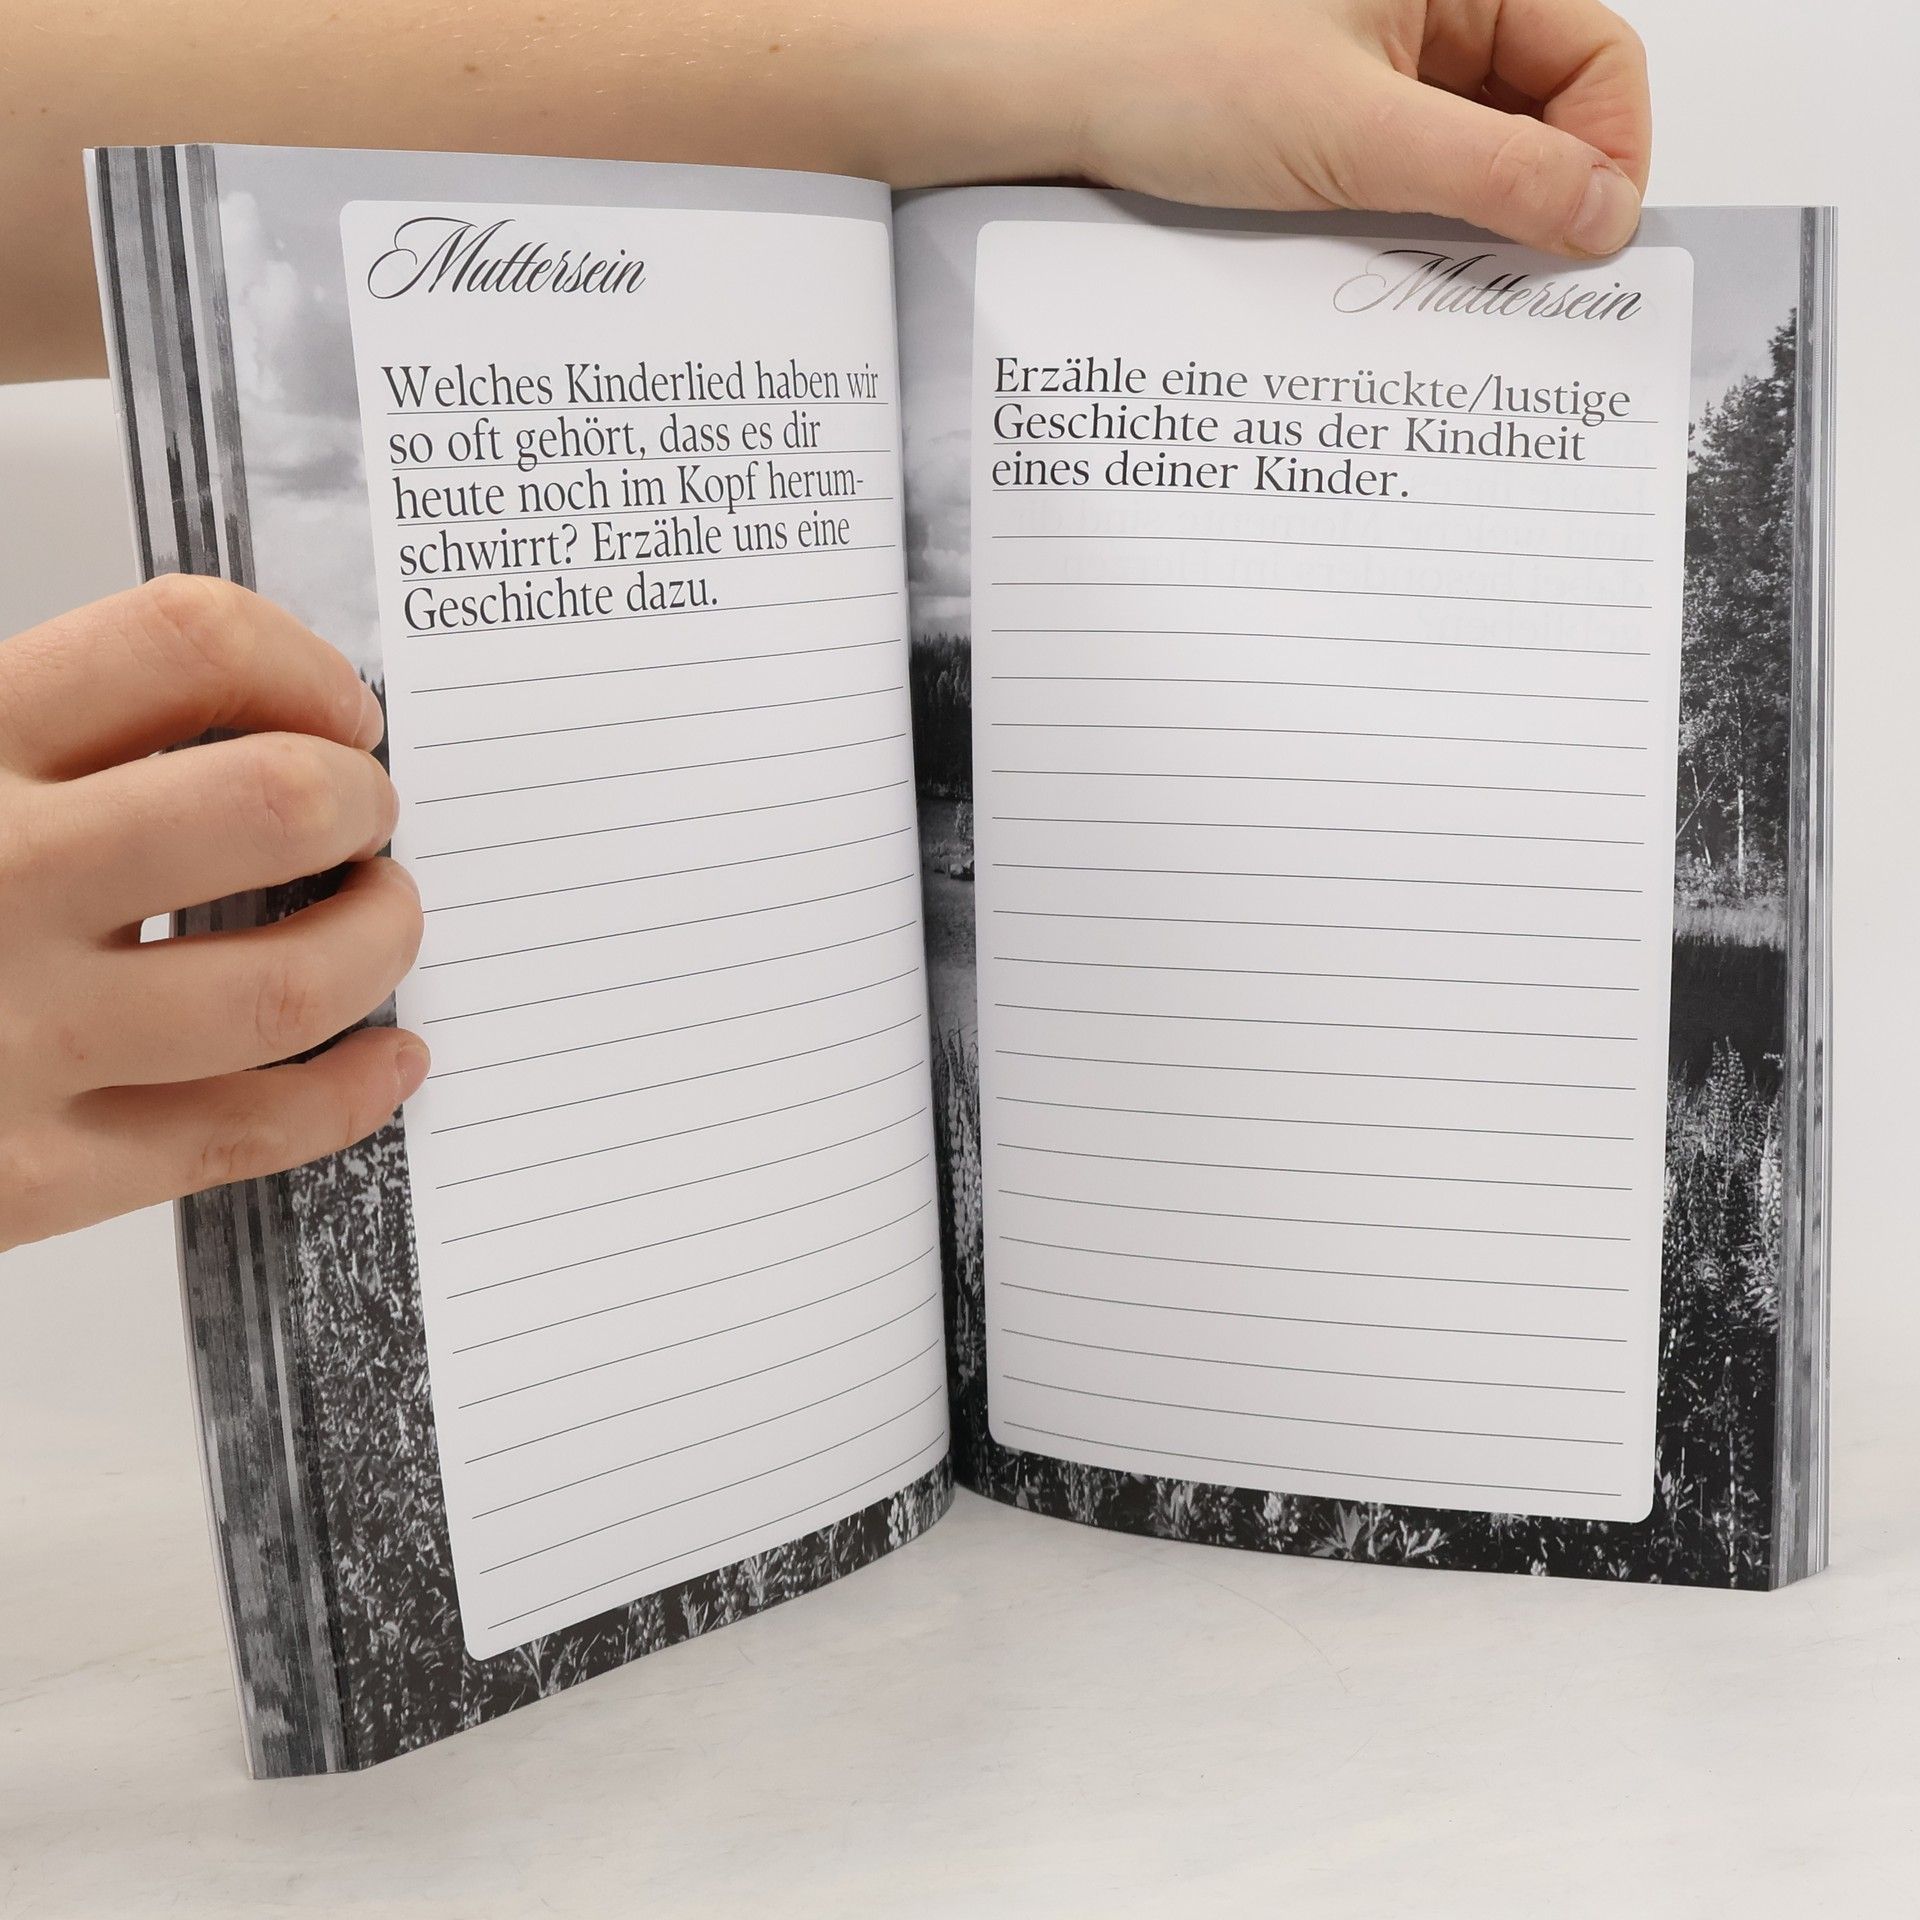 Muttersein
Welches Kinderlied haben wir
so oft gehört, dass es dir
heute noch im Kopf herum-
schwirrt? Erzähle uns eine
Geschichte dazu.
Muttersein
Erzähle eine verrückte/lustige
Geschichte aus der Kindheit
eines deiner Kinder.